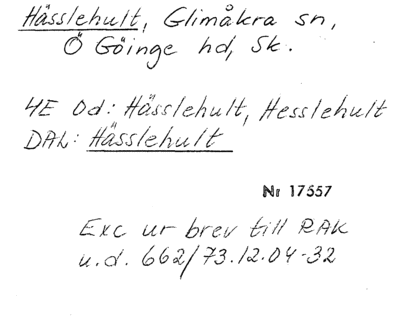 Hässlehult, Glimåkra sn,
Ö Göinge hd, Sk.
4E Od: Hässlehult, Hesslehult
DAL: Hässlehult
Nr 17557
Exc ur brev till RAK
u.d. 662/73.12.04-32